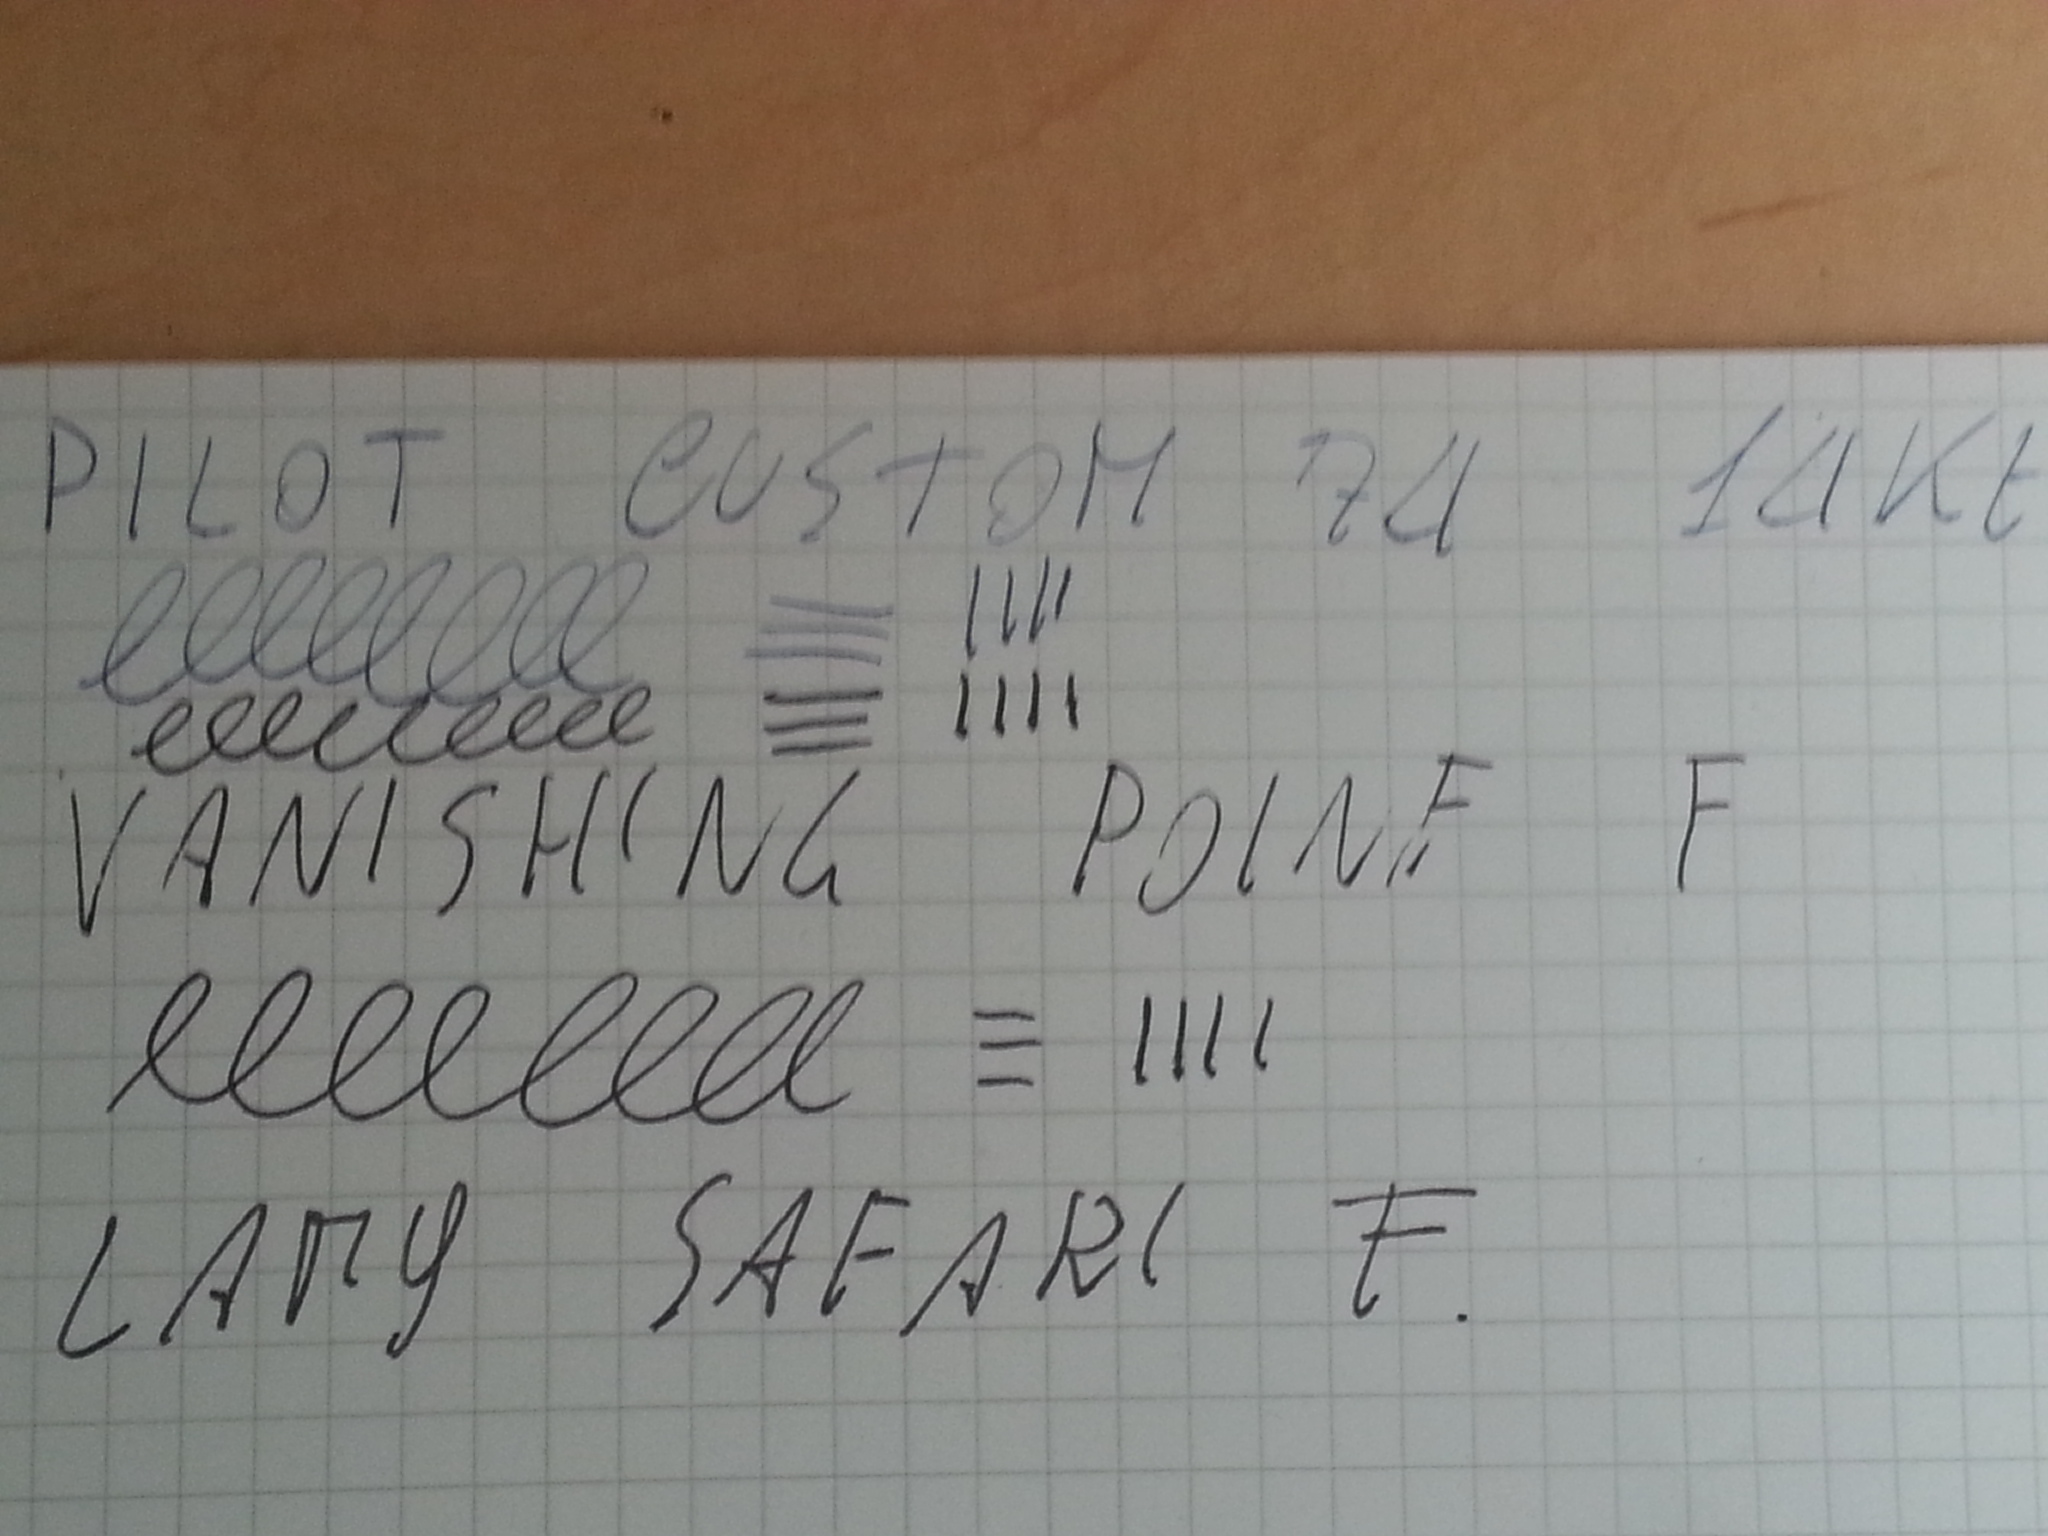 PILOT CUSTOM 74 14Kt
VANISHING POINT F
LAMY SAFARI F.